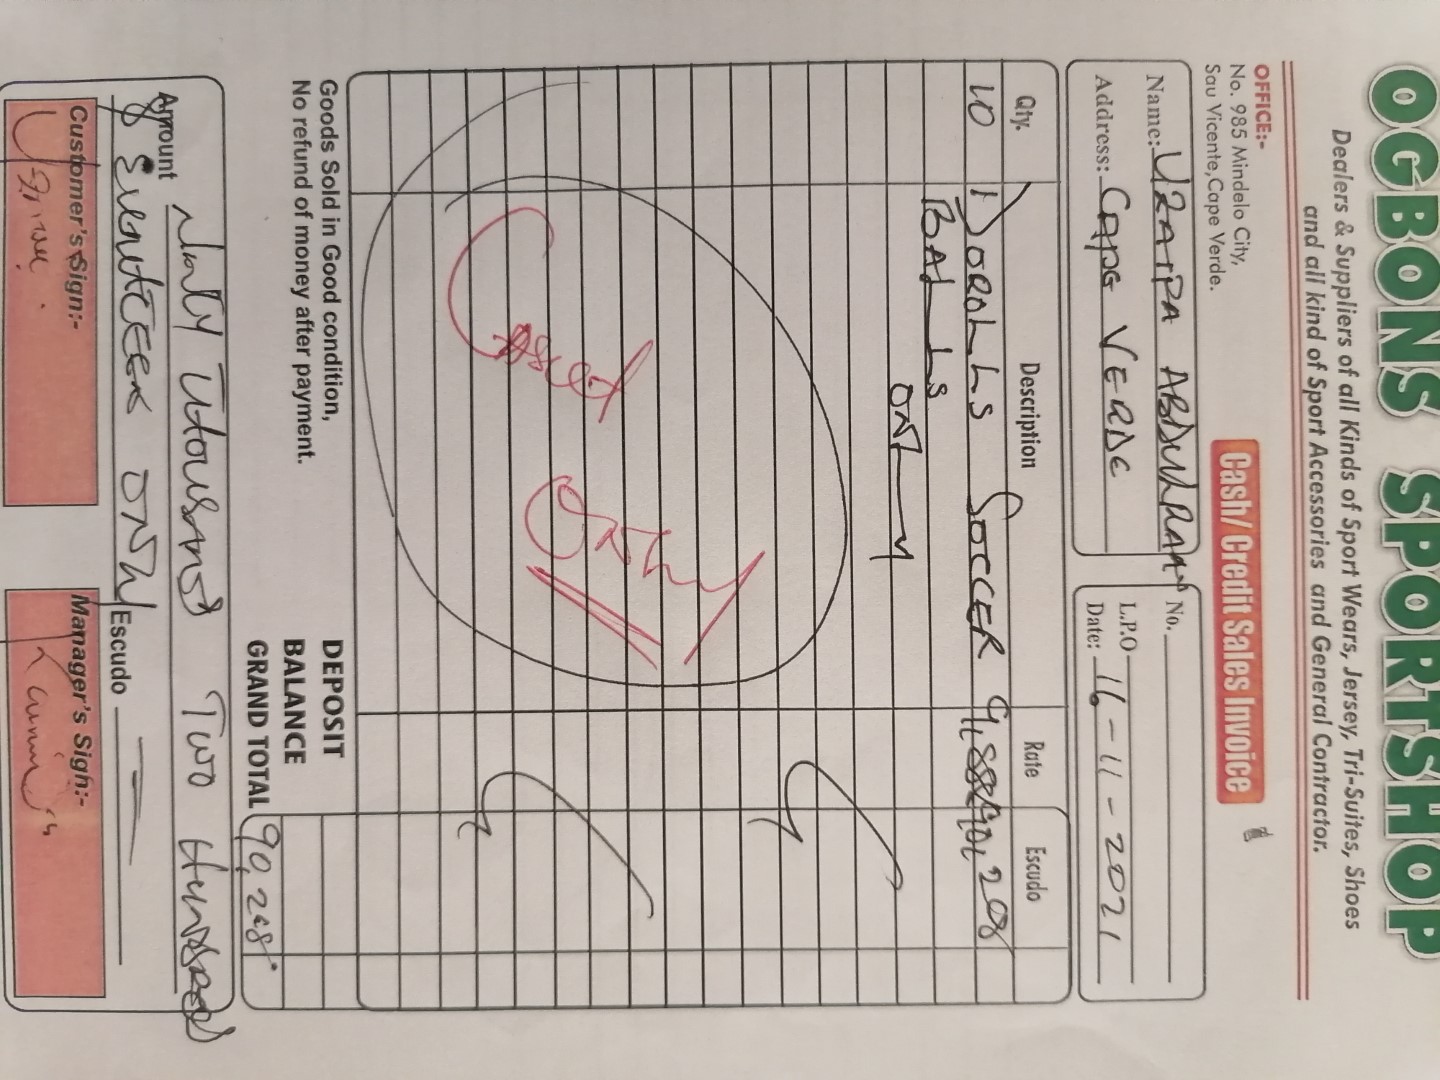 OGBONS SPORTSHOP
Dealers & Suppliers of all Kinds of Sport Wears, Jersey, Tri-Suites, Shoes
and all kind of Sport Accessories and General Contractor.
OFFICE:-
No. 985 Mindelo City,
Sau Vicente,Cape Verde.
Cash/ Credit Sales Invoice
Name: UZAIPA ABDULRAA
No.
Address: CAPE VERDE
L.P.O
Date: 16-11-2021
Qty. Description Rate Escudo
10 DOROLLS SOCCER 90,208
BALLS
ONLY
ONLY
Goods Sold in Good condition,
No refund of money after payment.
DEPOSIT
BALANCE
GRAND TOTAL 90,208
Amount Ninty Thousand Two Hundred
& ONLY Escudo
Customer's Sign:-
Manager's Sigh:-